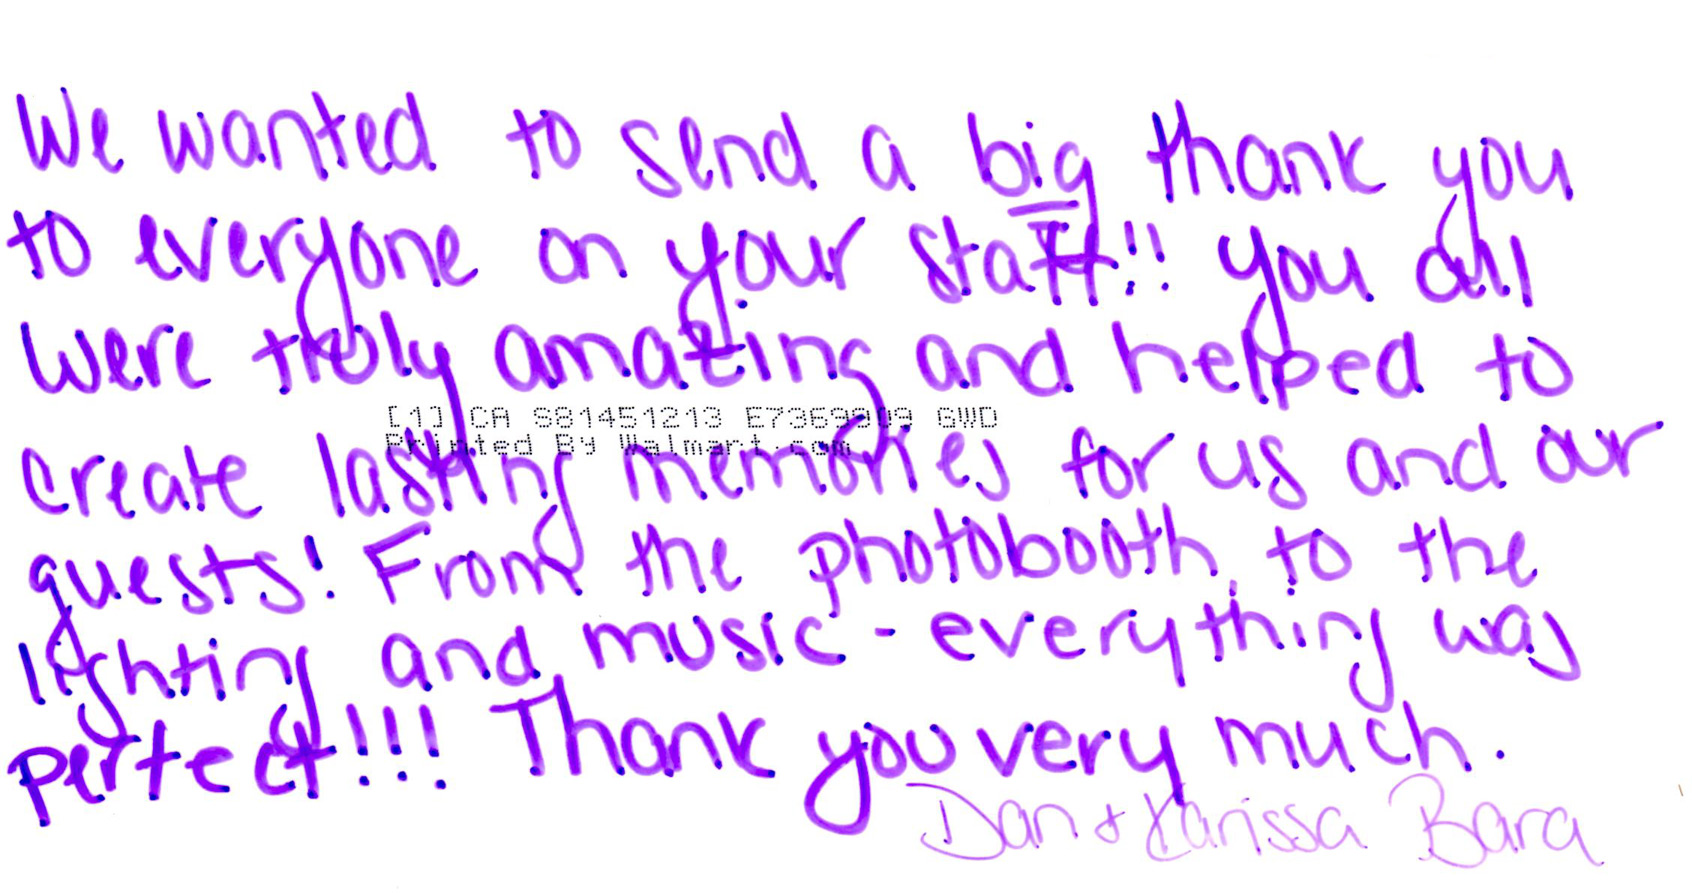 We wanted to send a big thank you
to everyone on your staff!! you all
were truly amazing and helped to
[1] CA S81451213 E7369909 GWD
Printed By Walmart.com
create lasting memories for us and our
guests! From the photobooth, to the
lighting and music - everything was
perfect!!! Thank you very much.
Dan + Karissa Bara